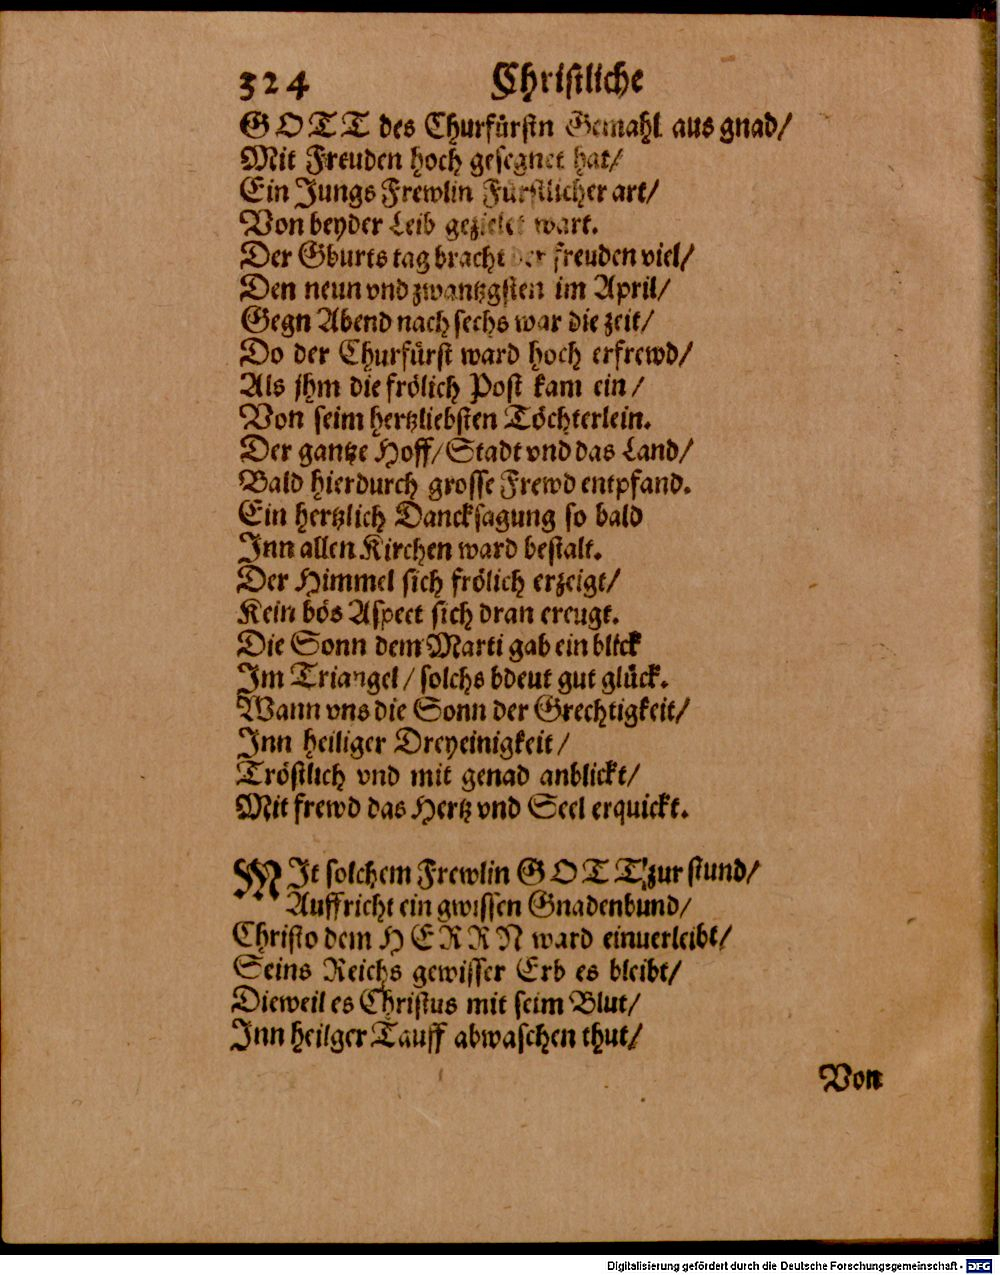 324 Christliche
GOTT des Churfürstn Gemahl aus gnad/
Mit Freuden hoch gesegnet hat/
Ein Jungs Frewlin Fürstlicher art/
Von beyder Leib gezielet wart.
Der Gburts tag bracht der freuden viel/
Den neun vnd zwantzgsten im April/
Gegn Abend nach sechs war die zeit/
Do der Churfürst ward hoch erfrewd/
Als jhm die frölich Post kam ein/
Von seim hertzliebsten Töchterlein.
Der gantze Hoff/Stadt vnd das Land/
Bald hierdurch grosse Frewd entpfand.
Ein hertzlich Dancksagung so bald
Inn allen Kirchen ward bestalt.
Der Himmel sich frölich erzeigt/
Kein bös Aspect sich dran ereugt.
Die Sonn dem Marti gab ein blick
Im Triangel/solchs bdeut gut glück.
Wann vns die Sonn der Grechtigkeit/
Inn heiliger Dreyeinigkeit/
Tröstlich vnd mit genad anblickt/
Mit frewd das Hertz vnd Seel erquickt.
MIt solchem Frewlin GOTT zur stund/
Auffricht ein gwissen Gnadenbund/
Christo dem HERRN ward einuerleibt/
Seins Reichs gewisser Erb es bleibt/
Dieweil es Christus mit seim Blut/
Inn heilger Tauff abwaschen thut/
Von
Digitalisierung gefördert durch die Deutsche Forschungsgemeinschaft - DFG